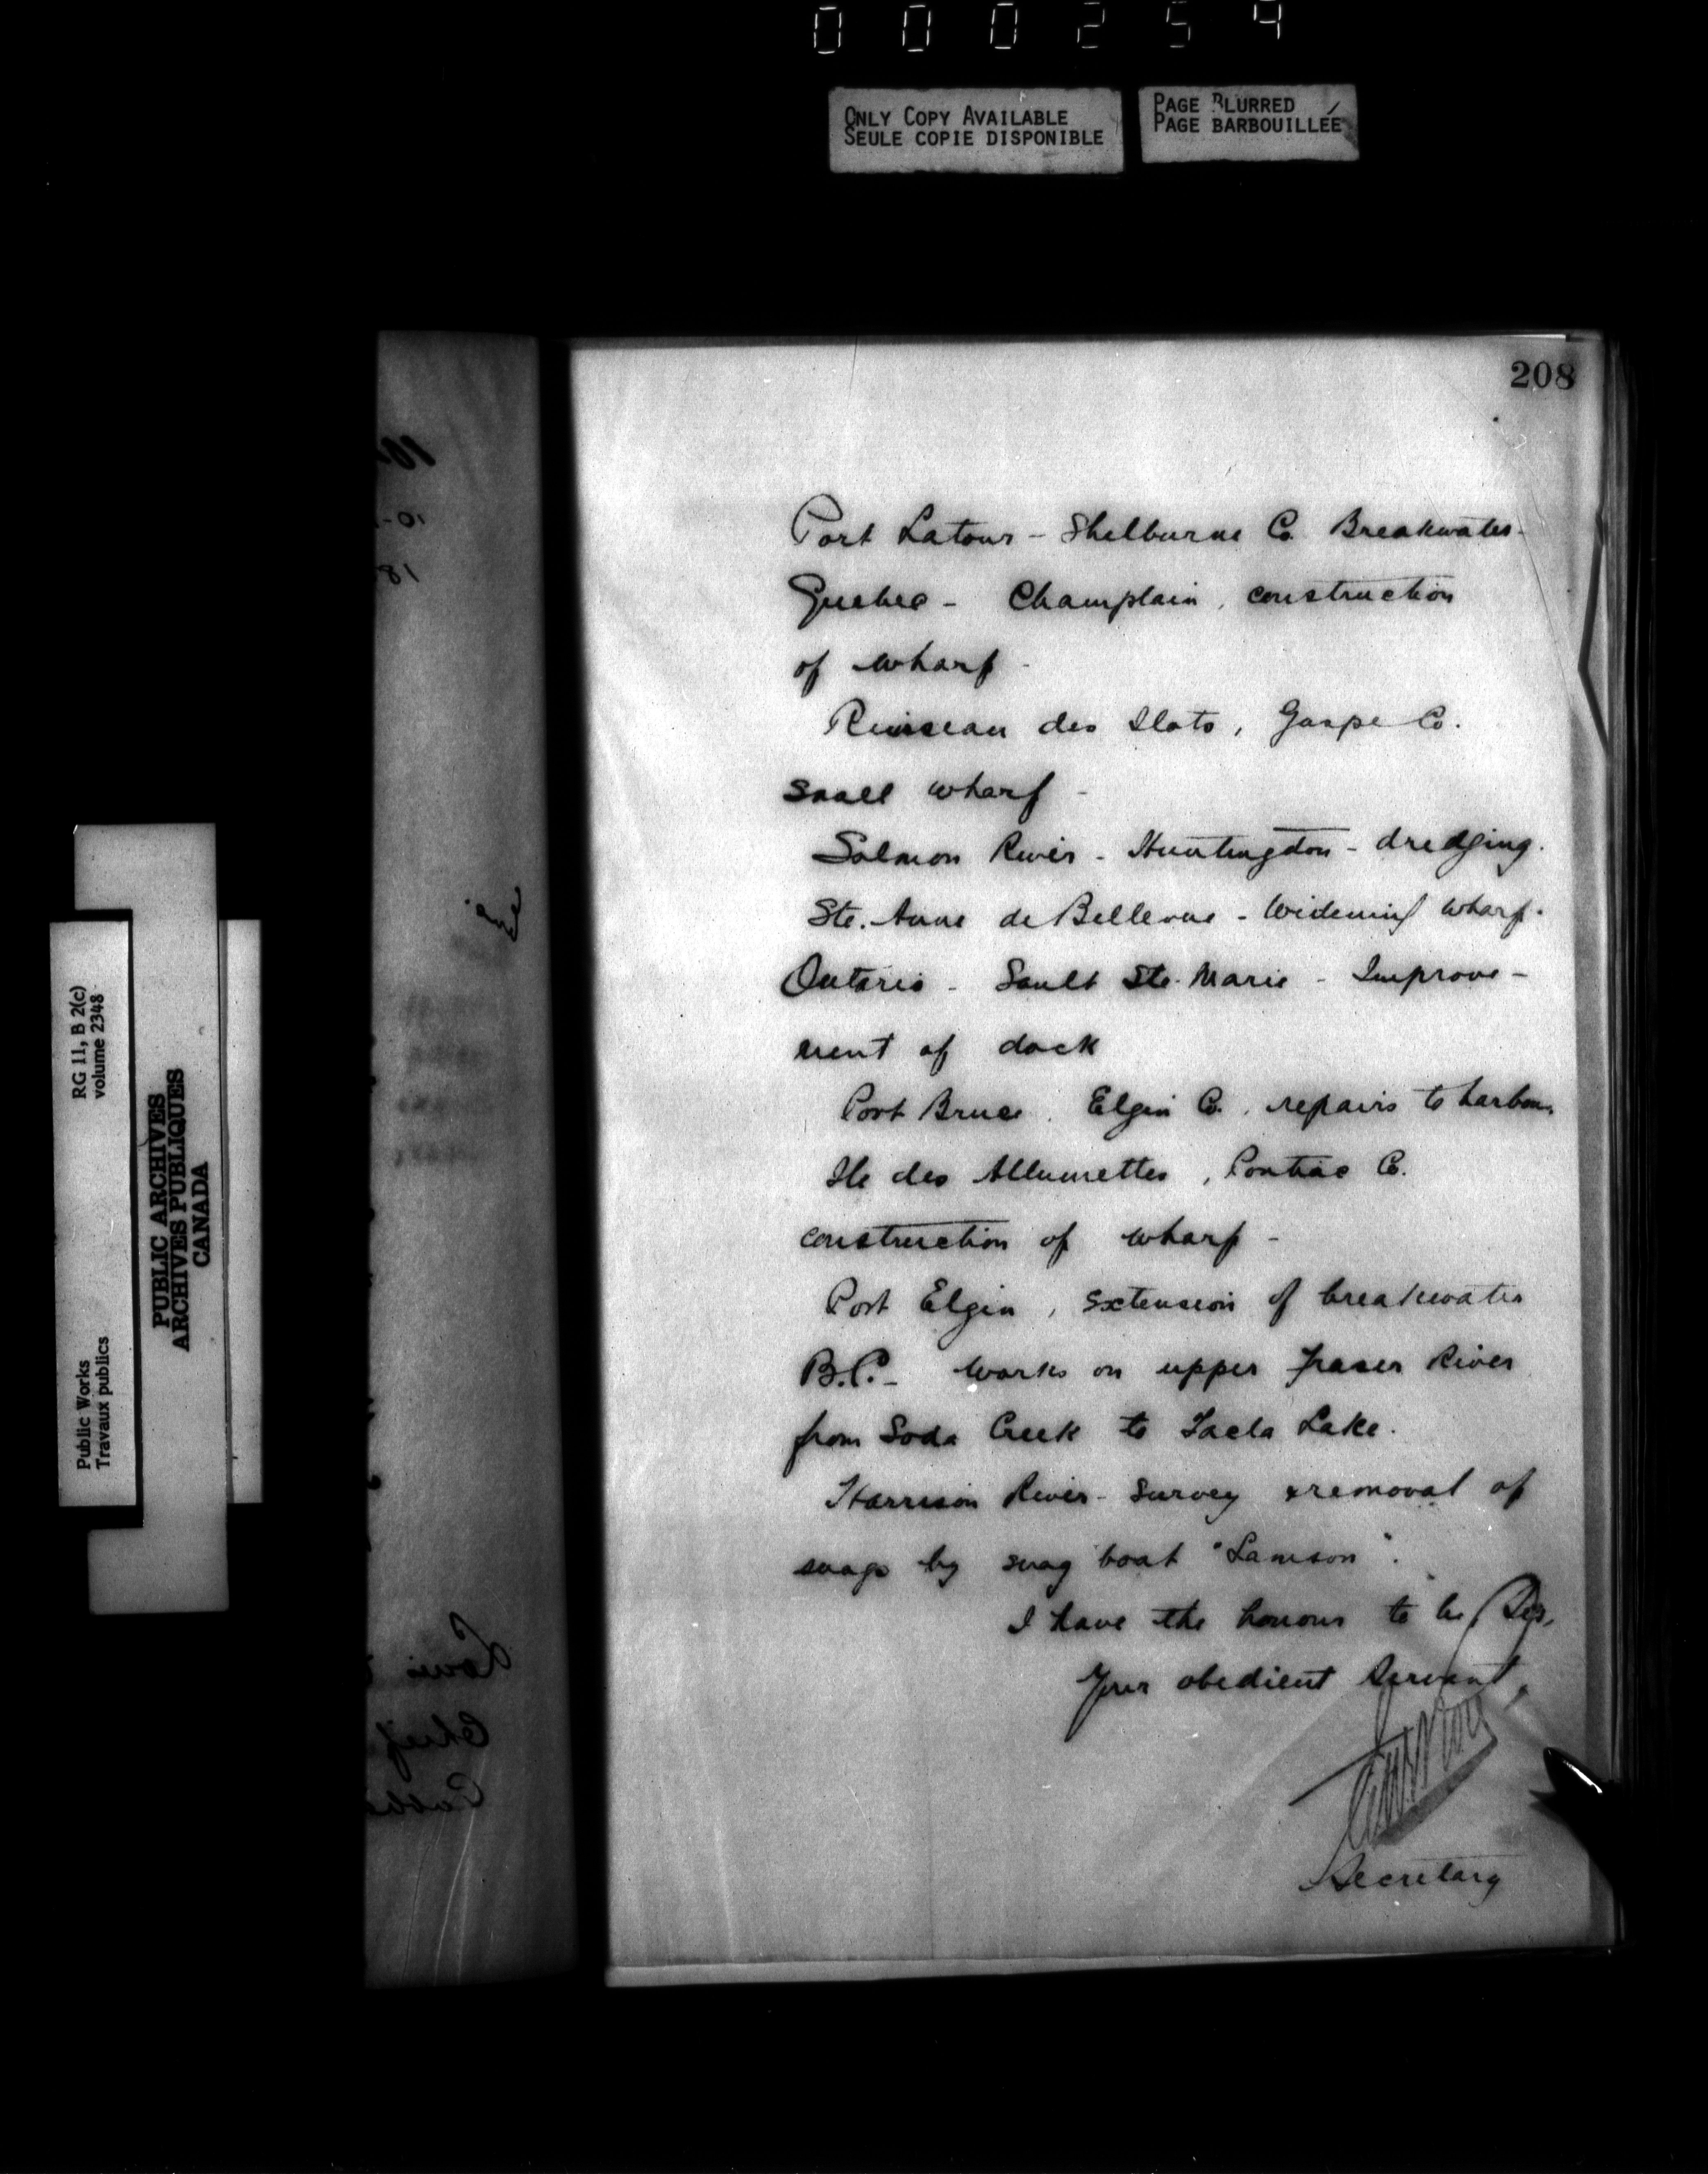 000254
ONLY COPY AVAILABLE
SEULE COPIE DISPONIBLE
PAGE BLURRED
PAGE BARBOUILLÉE
208
Port Latour - Shelburne Co. Breakwater -
Quebec - Champlain, construction
of wharf -
Ruisseau des Ilots, Gaspe Co.
small wharf -
Salmon River - Huntingdon - dredging.
Ste. Anne de Bellevue - Widening wharf.
Ontario - Sault Ste. Marie - Improve-
ment of dock
Port Bruce, Elgin Co., repairs to harbour
Ile des Allumettes, Pontiac Co.
construction of wharf -
Port Elgin, extension of breakwater
B.C. - Works on upper Fraser River
from Soda Creek to Tacla Lake.
Harrison River - Survey & removal of
snags by snag boat "Samson".
I have the honour to be, Sir,
Your obedient Servant,
Secretary
RG 11, B 2(c)
volume 2348
Public Works
Travaux publics
PUBLIC ARCHIVES
ARCHIVES PUBLIQUES
CANADA